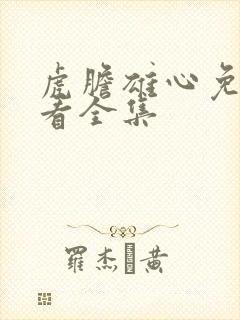 虎膽雄心免
看全集
羅杰 黄